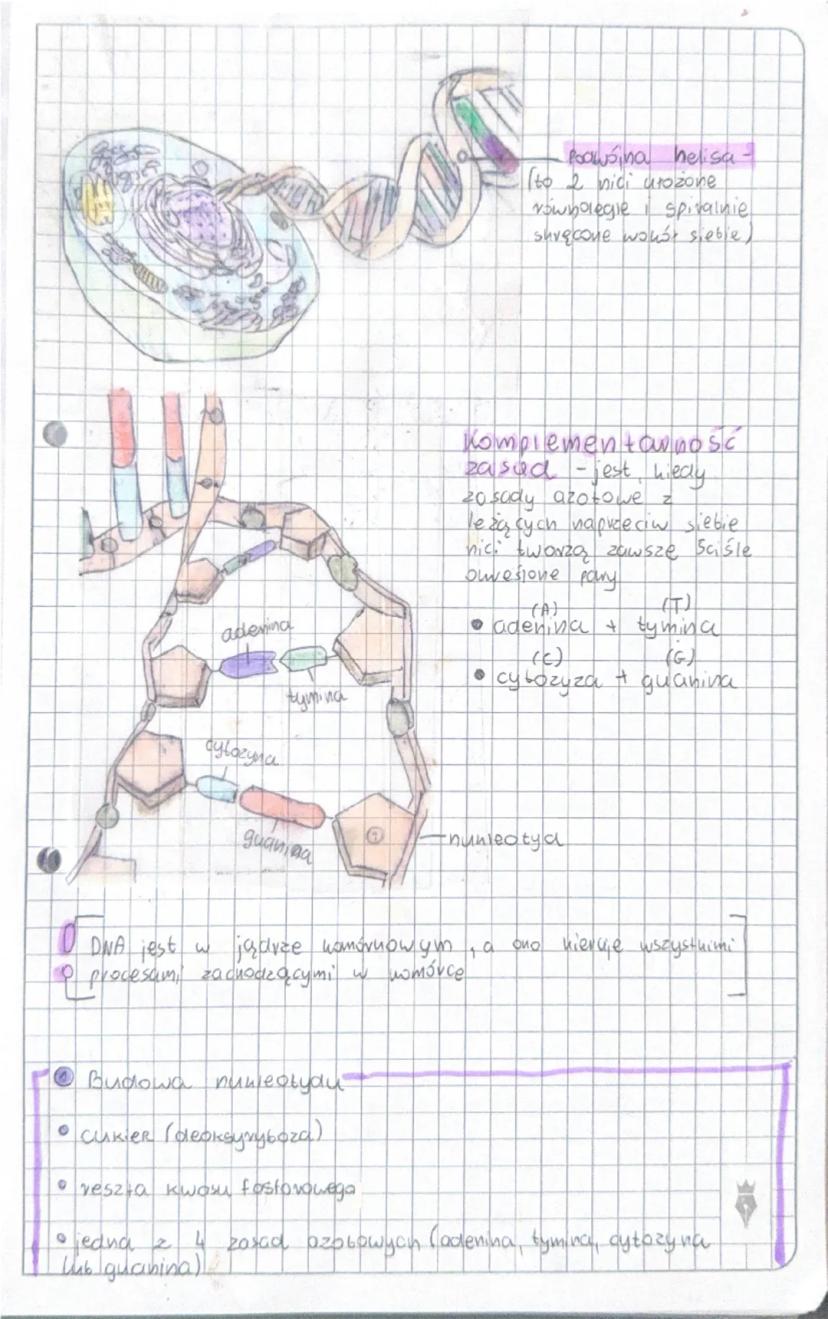 Podwójna helisa -
(to 2 nici ułożone
równolegle i spiralnie
skręcone wokół siebie)
Komplementarność
zasad - jest, kiedy
zasady azotowe z
leżących naprzeciw siebie
nici tworzą zawsze ściśle
określone pary
(A) (T)
• adenina + tymina
(C) (G)
• cytozyza + guanina
adenina
tymina
cytozyna
guanina
nukleotyd
DNA jest w jądrze komórkowym, a ono kieruje wszystkimi
procesami zachodzącymi w komórce
Budowa nukleotydu
• cukier (deoksyryboza)
• reszta kwasu fosforowego
• jedna z 4 zasad azotowych (adenina, tymina, cytozyna
lub guanina)